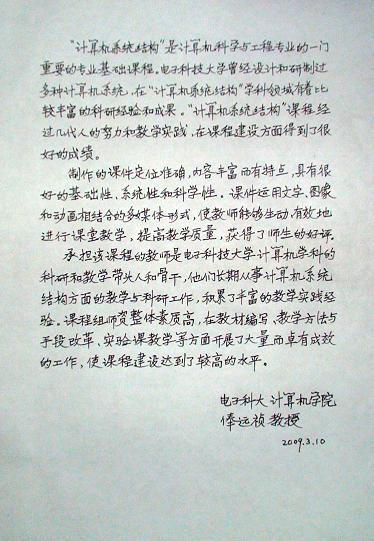 “计算机系统结构”是计算机科学与工程专业的一门
重要的专业基础课程。电子科技大学曾经设计和研制过
多种计算机系统，在“计算机系统结构”学科领域有着比
较丰富的科研经验和成果。“计算机系统结构”课程经
过几代人的努力和教学实践，在课程建设方面得到了很
好的成绩。
制作的课件定位准确，内容丰富而有特点，具有很
好的基础性、系统性和科学性。课件运用文字、图象
和动画相结合的多媒体形式，使教师能够生动有效地
进行课堂教学，提高教学质量，获得了师生的好评。
承担该课程的教师是电子科技大学计算机学科的
科研和教学带头人和骨干，他们长期从事计算机系统
结构方面的教学与科研工作，积累了丰富的教学实践经
验。课程组师资整体素质高，在教材编写、教学方法与
手段改革、实验课教学等方面开展了大量而卓有成效
的工作，使课程建设达到了较高的水平。
电子科大计算机学院
俸远祯教授
2009.3.10